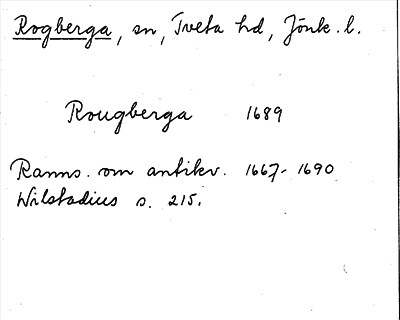 Rogberga, sn, Tveta hd, Jönk. l.
Rougberga 1689
Ranns. om antikv. 1667-1690
Wilstadius s. 215.